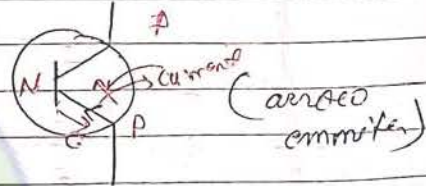 P
N
current
P
(arrow
emmiter)